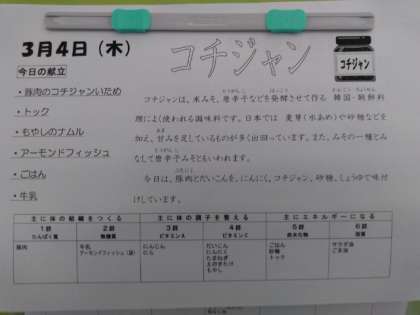 3月4日（木）
コチジャン
コチジャン
今日の献立
・豚肉のコチジャンいため
・トック
・もやしのナムル
・アーモンドフィッシュ
・ごはん
・牛乳
コチジャンは、米みそ、唐辛子などを発酵させて作る 韓国・朝鮮料
理によく使われる調味料です。日本では 麦芽（水あめ）や砂糖などを
加え、甘みを足しているものが多く出回っています。また、みその一種とみ
なして唐辛子みそともいわれます。
今日は、豚肉とだいこんを、にんにく、コチジャン、砂糖、しょうゆで味付
けしています。
主に体の組織をつくる 主に体の調子を整える 主にエネルギーになる
1群 2群 3群 4群 5群 6群
たんぱく質 無機質 ビタミンA ビタミンC 炭水化物 脂質
豚肉 牛乳 にんじん だいこん ごはん サラダ油
アーモンドフィッシュ にら にんにく 砂糖 ごま油
たまねぎ トック
えのきたけ
もやし